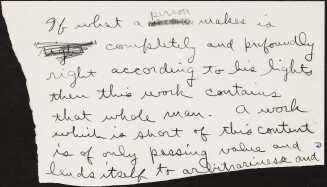 person
If what a makes is
completely and profoundly
right according to his lights
then this work contains
that whole man. A work
which is short of this content
is of only passing value and
lends itself to arbitrariness and